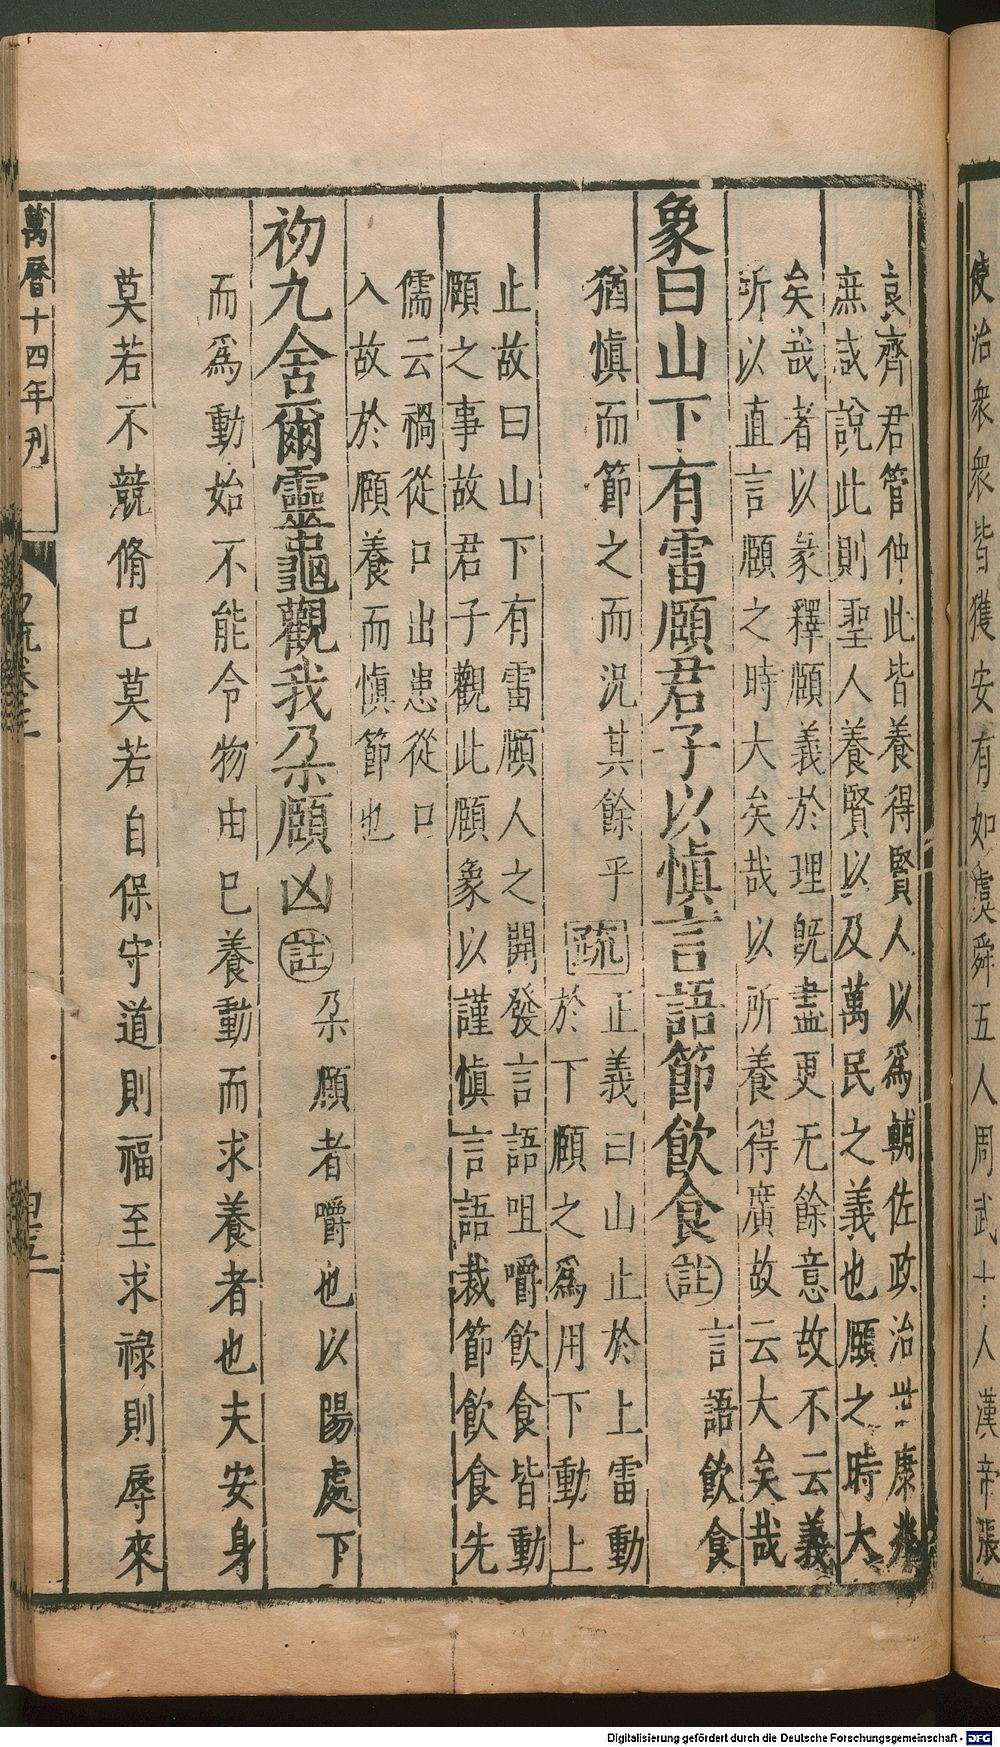 使治衆衆皆獲安有如虞舜五人周武十人漢帝張
哀齊君管仲此皆養得賢人以爲輔佐政治世康兆
庶咸說此則聖人養賢以及萬民之義也頤之時大
矣哉者以彖釋頤義於理旣盡更无餘意故不云義
所以直言頤之時大矣哉以所養得廣故云大矣哉
象曰山下有雷頤君子以愼言語節飲食註言語飲食
猶愼而節之而況其餘乎疏正義曰山止於上雷動
於下頤之爲用下動上
止故曰山下有雷頤人之開發言語咀嚼飲食皆動
頤之事故君子觀此頤象以謹愼言語裁節飲食先
儒云禍從口出患從口
入故於頤養而愼節也
初九舍爾靈龜觀我朵頤凶註朵頤者嚼也以陽處下
而爲動始不能令物由己養動而求養者也夫安身
莫若不競脩己莫若自保守道則福至求祿則辱來
萬曆十四年刋
易疏卷三
四十五
Digitalisierung gefördert durch die Deutsche Forschungsgemeinschaft - DFG